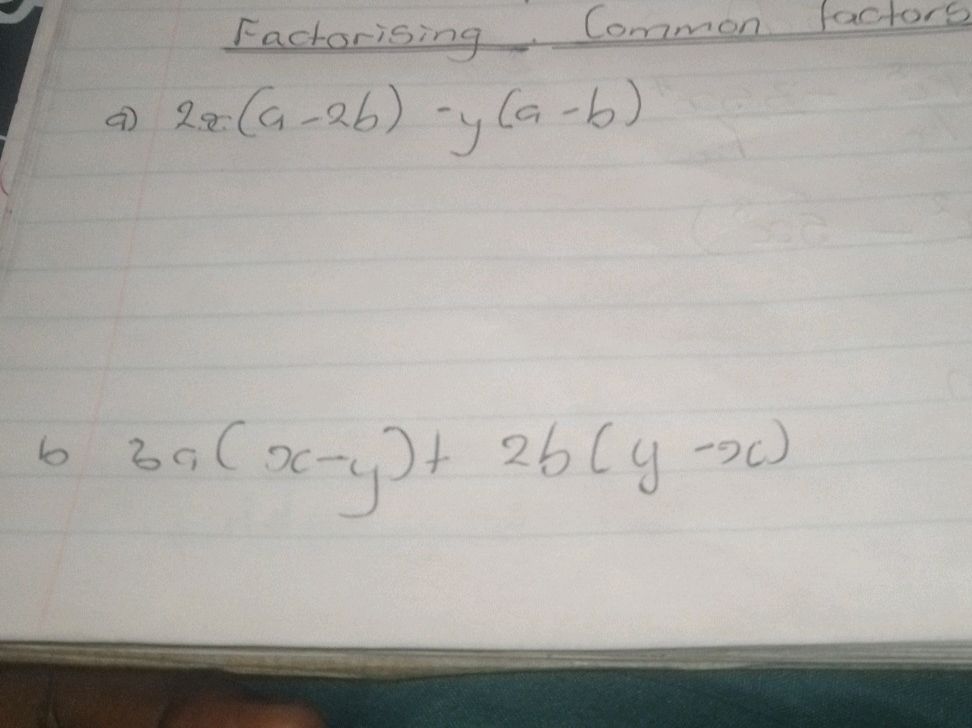 Factorising Common factors
a) 2x(a-2b) -y(a-b)
b 3a(x-y)+ 2b(y-x)